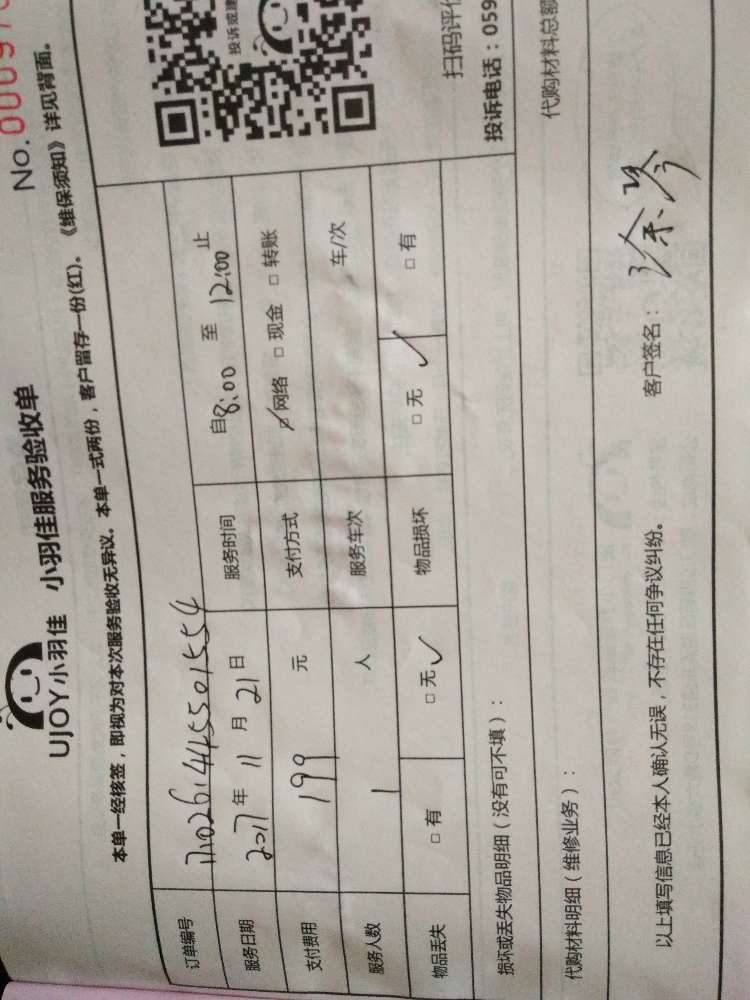 No. 00097
UJOY小羽佳 小羽佳服务验收单
本单一经核签，即视为对本次服务验收无异议。本单一式两份，客户留存一份(红)。《维保须知》详见背面。
订单编号 171026144550 1554
服务日期 2017 年 11 月 21 日 服务时间 自 8:00 至 12:00 止
支付费用 199 元 支付方式 ☑ 网络 □ 现金 □ 转账
服务人数 1 人 服务车次 车/次
物品丢失 □ 有 □ 无 ✓ 物品损坏 □ 无 ✓ □ 有
投诉或建
扫码评价
投诉电话：059
损坏或丢失物品明细（没有可不填）：
代购材料明细（维修业务）： 代购材料总额
以上填写信息已经本人确认无误，不存在任何争议纠纷。 客户签名： 徐琴